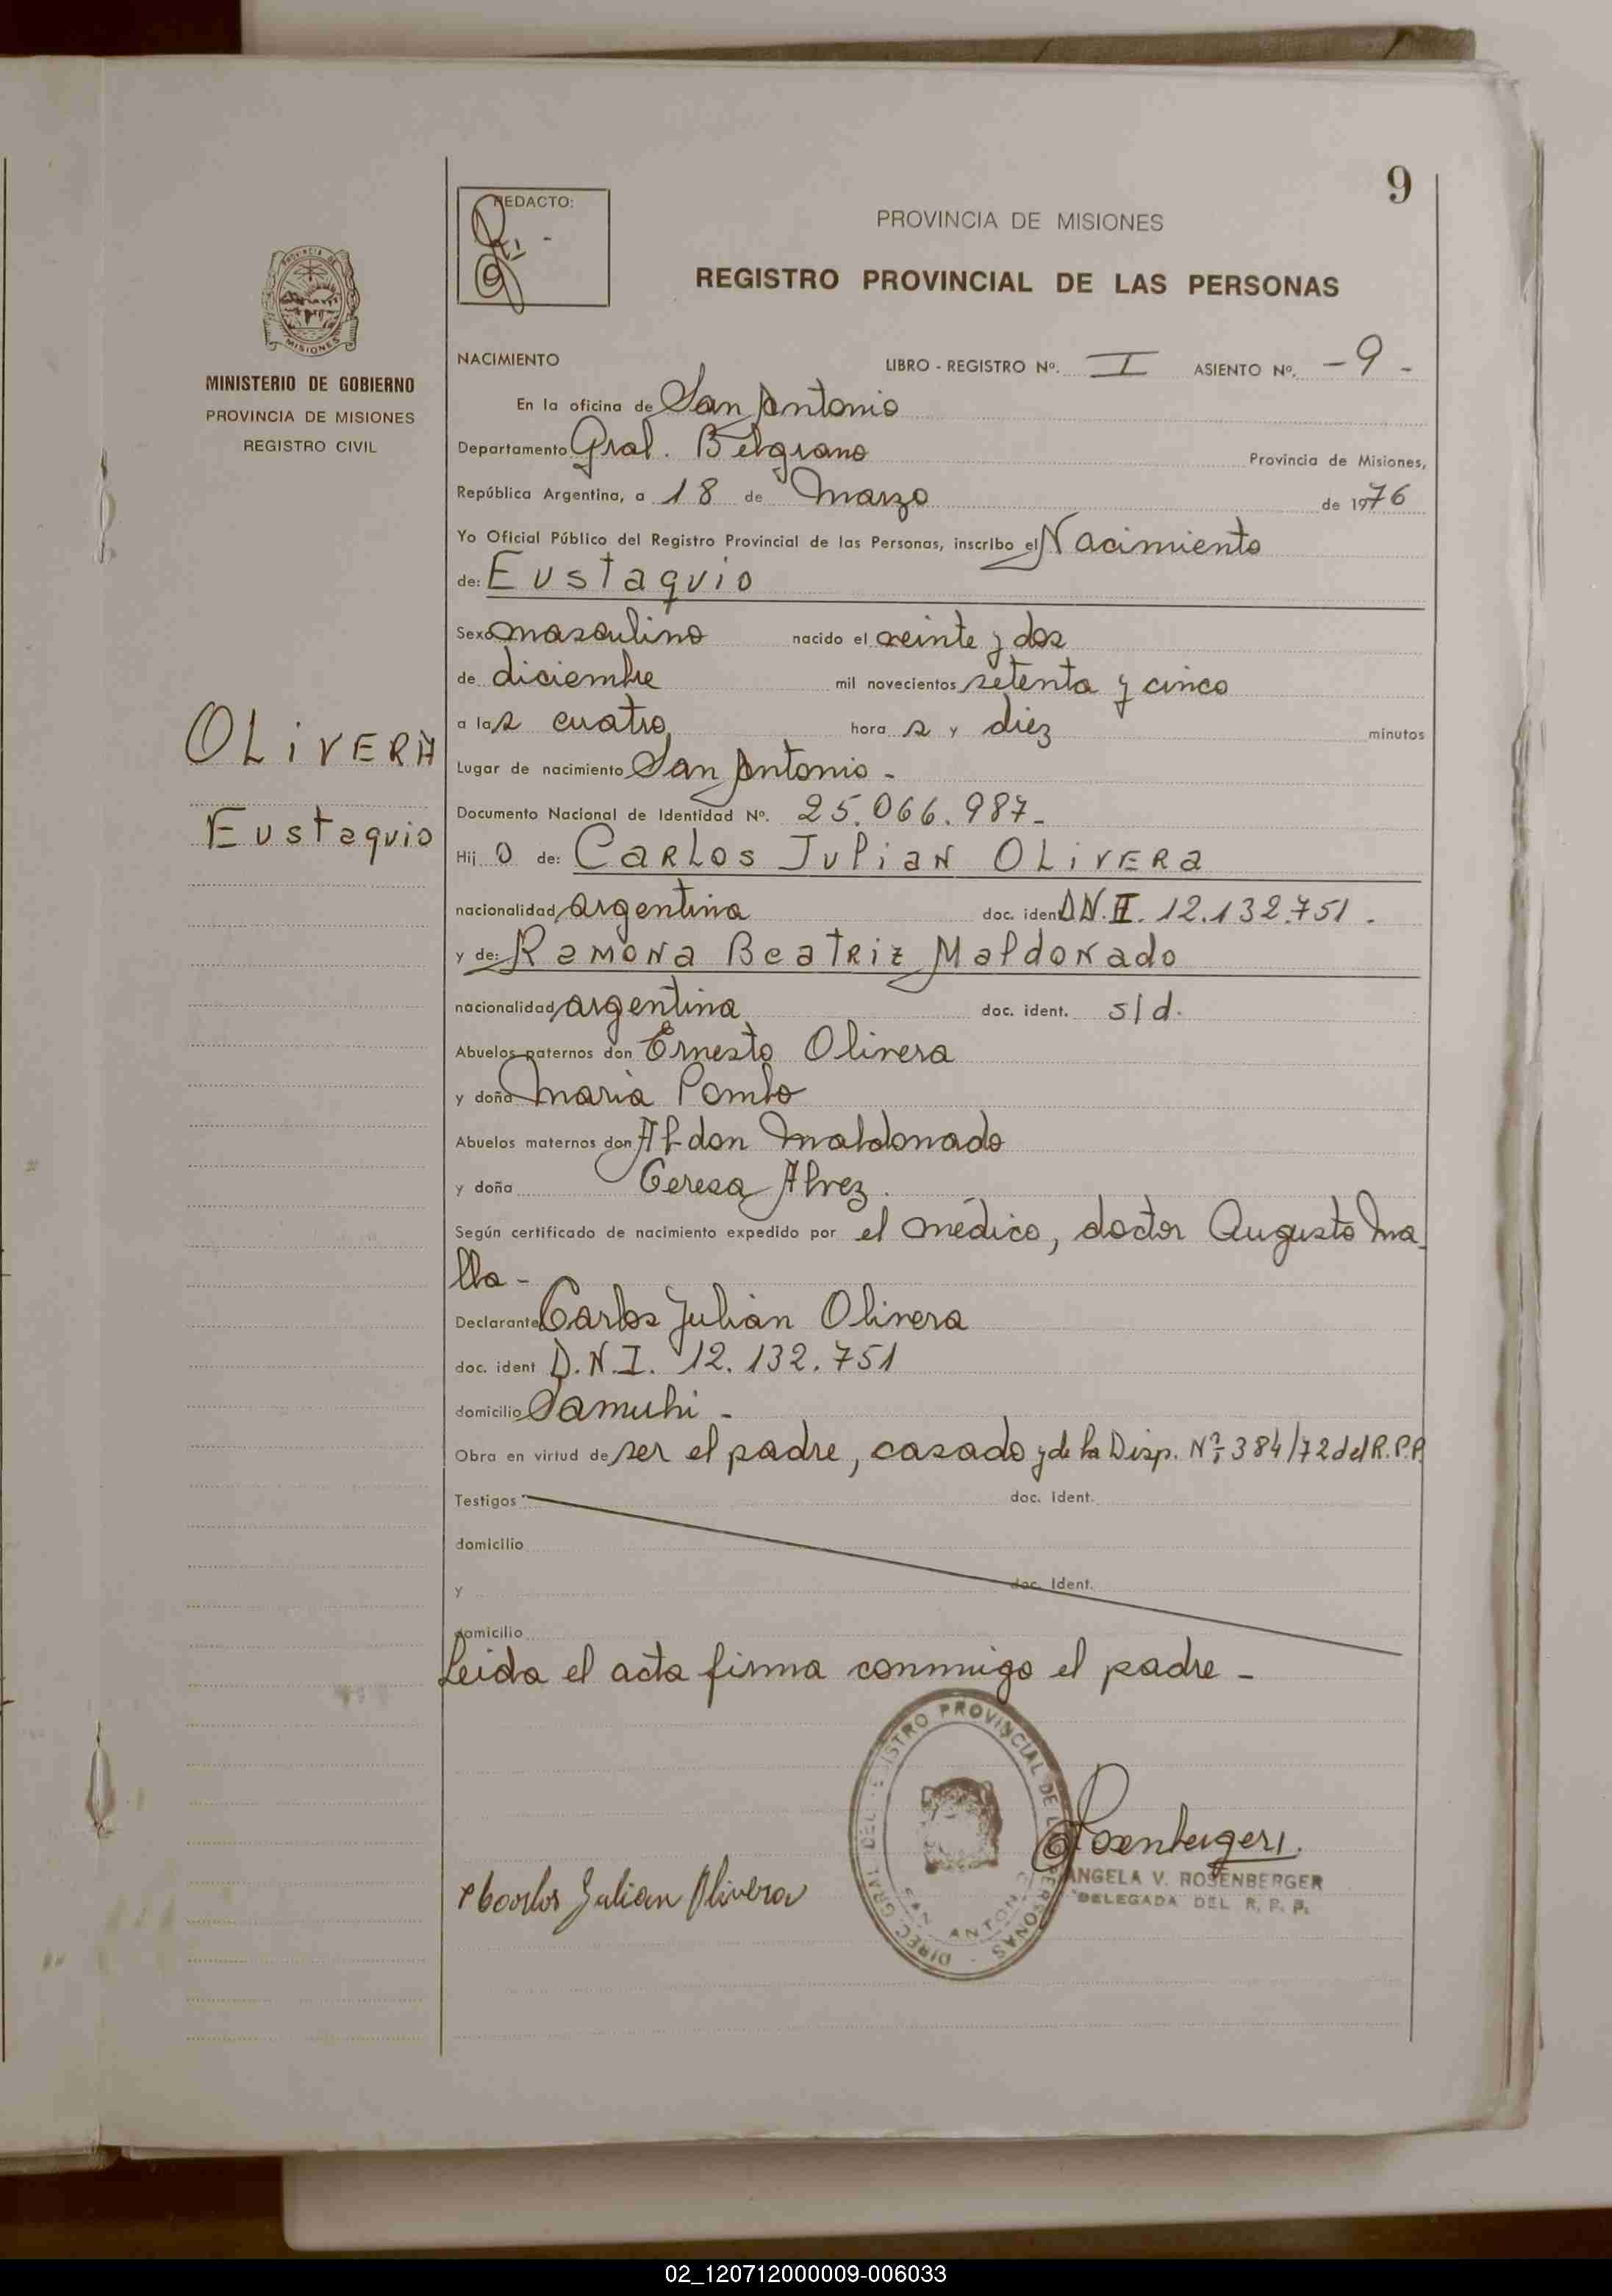 9
REDACTO:
PROVINCIA DE MISIONES
REGISTRO PROVINCIAL DE LAS PERSONAS
MISIONES
MINISTERIO DE GOBIERNO
PROVINCIA DE MISIONES
REGISTRO CIVIL
OLiVERA
Eustaquio
NACIMIENTO LIBRO - REGISTRO Nº. I ASIENTO Nº. -9-
En la oficina de San Antonio
Departamento Gral. Belgrano Provincia de Misiones,
República Argentina, a 18 de Marzo de 1976
Yo Oficial Público del Registro Provincial de las Personas, inscribo el Nacimiento
de: Eustaquio
Sexo masculino nacido el veinte y dos
de diciembre mil novecientos setenta y cinco
a las cuatro hora s y diez minutos
Lugar de nacimiento San Antonio -
Documento Nacional de Identidad Nº. 25.066.987-
Hij o de: CARLOS JULiAN OLiVERA
nacionalidad argentina doc. ident D.N.I. 12.132.751.
y de: RAMONA BEATRiz MALdONAdo
nacionalidad argentina doc. ident. s/d.
Abuelos paternos don Ernesto Olivera
y doña Maria Pombo
Abuelos maternos don Aldon Maldonado
y doña Teresa Alvez.
Según certificado de nacimiento expedido por el médico, doctor Augusto Ma-
lla-
Declarante Carlos Julián Olivera
doc. ident D.N.I. 12.132.751
domicilio Samuhi -
Obra en virtud de ser el padre, casado y de la Disp. Nº 384/72 del R.P.P.
Testigos doc. Ident.
domicilio
y doc. Ident.
domicilio
Leida el acta firma conmigo el padre -
DIREC. GRAL. DEL REGISTRO PROVINCIAL DE LAS PERSONAS
SAN ANTONIO
Carlos Julian Olivera
Rosenberger
ANGELA V. ROSENBERGER
DELEGADA DEL R. P. P.
02_120712000009-006033